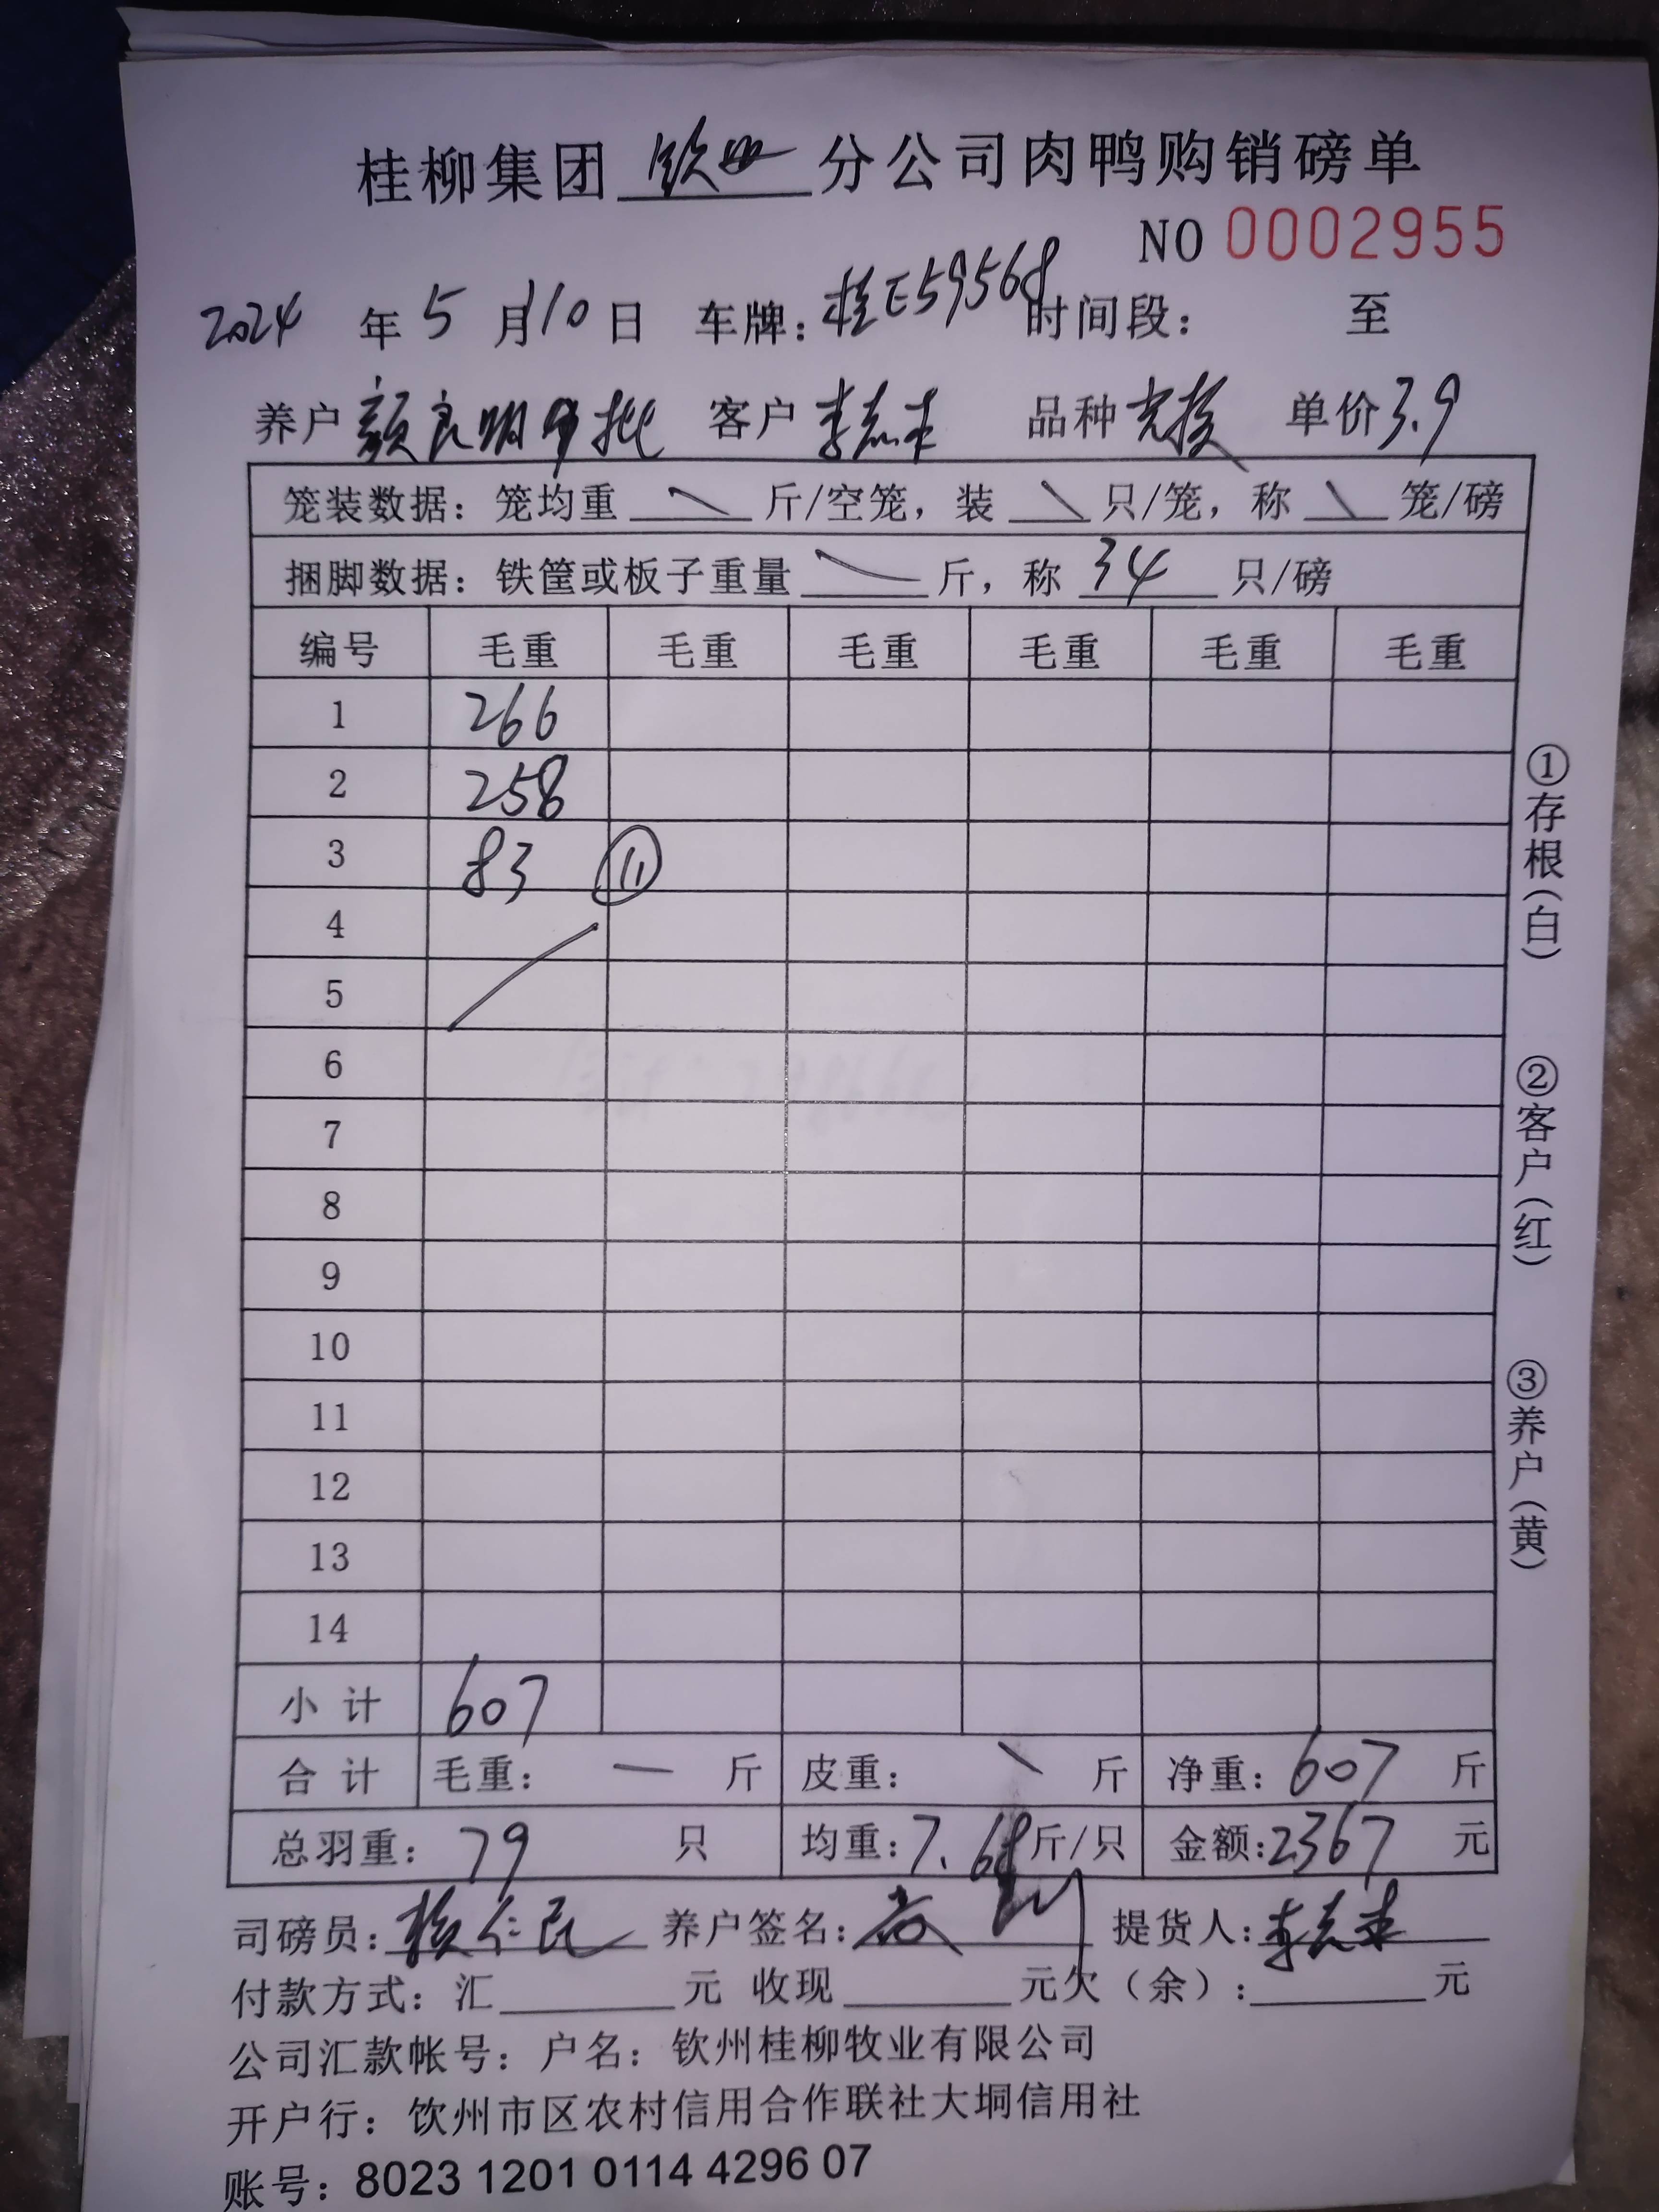 桂柳集团 钦州 分公司肉鸭购销磅单
NO 0002955
2024 年 5 月 10 日 车牌：桂E59568 时间段： 至
养户 颜良明 批 客户 李志 品种 单价 3.9
笼装数据：笼均重 \ 斤/空笼，装 \ 只/笼，称 \ 笼/磅
捆脚数据：铁筐或板子重量 \ 斤，称 34 只/磅
编号 毛重 毛重 毛重 毛重 毛重 毛重
1 266
2 258
3 83 ⑪
4
5
6
7
8
9
10
11
12
13
14
小 计 607
合 计 毛重： — 斤 皮重： \ 斤 净重：607 斤
总羽重：79 只 均重：7.68斤/只 金额：2367 元
司磅员： 仁民 养户签名： 提货人：李志
付款方式：汇 元 收现 元欠（余）： 元
公司汇款帐号：户名：钦州桂柳牧业有限公司
开户行：饮州市区农村信用合作联社大垌信用社
账号：8023 1201 0114 4296 07
①存根（白）
②客户（红）
③养户（黄）